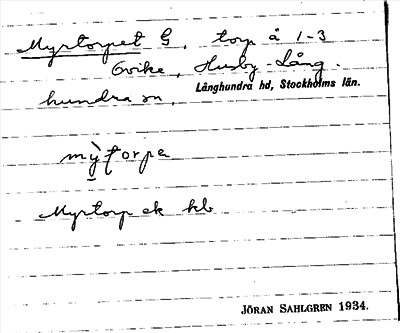 Myrtorpet G, torp å 1-3
Gvike, Husby-Lång-
hundra sn,
Långhundra hd, Stockholms län.
mỳtorpa
Myrtorp ek kb
JÖRAN SAHLGREN 1934.